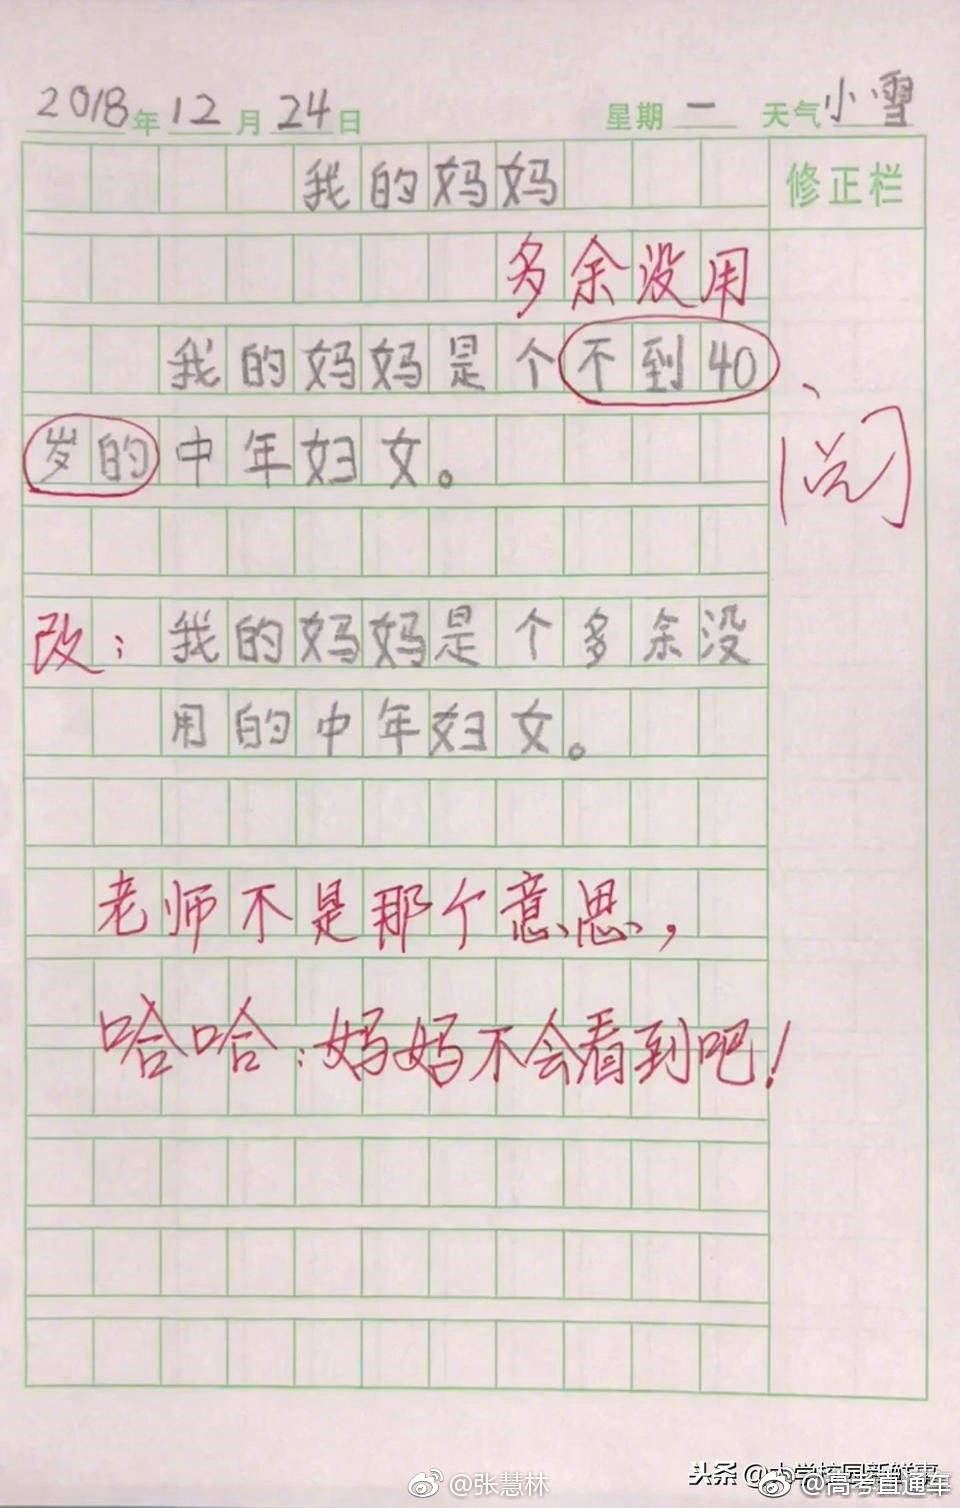 2018年12月24日 星期一 天气小雪
我的妈妈
修正栏
多余没用
我的妈妈是个不到40
岁的中年妇女。
阅
改：我的妈妈是个多余没
用的中年妇女。
老师不是那个意思，
哈哈：妈妈不会看到吧！
@张慧林
头条 @大学校园新鲜事
@高考直通车